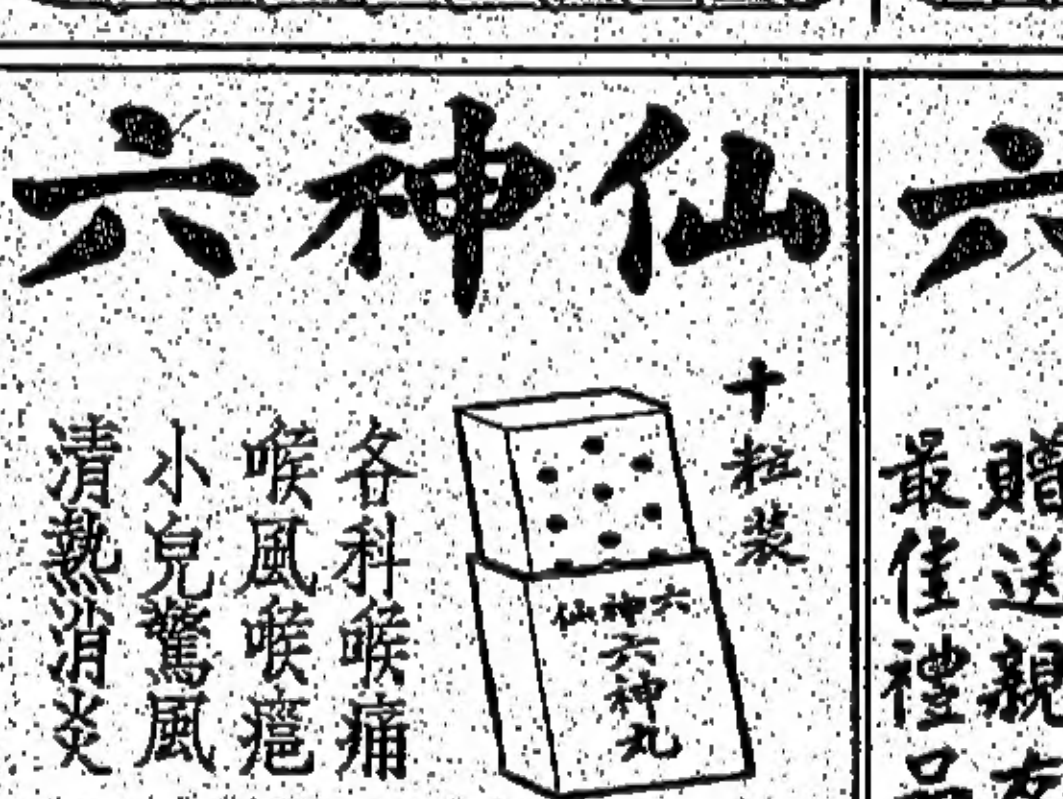 六神仙
十粒裝
六神仙
六神丸
各科喉痛
喉風喉
小兒驚風
清熱消炎
六
贈送親
最佳禮